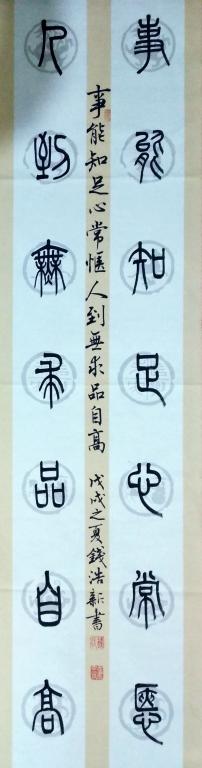 事能知足心常惬
人到無求品自高
事能知足心常惬人到無求品自高 戊戌之夏錢浩新書